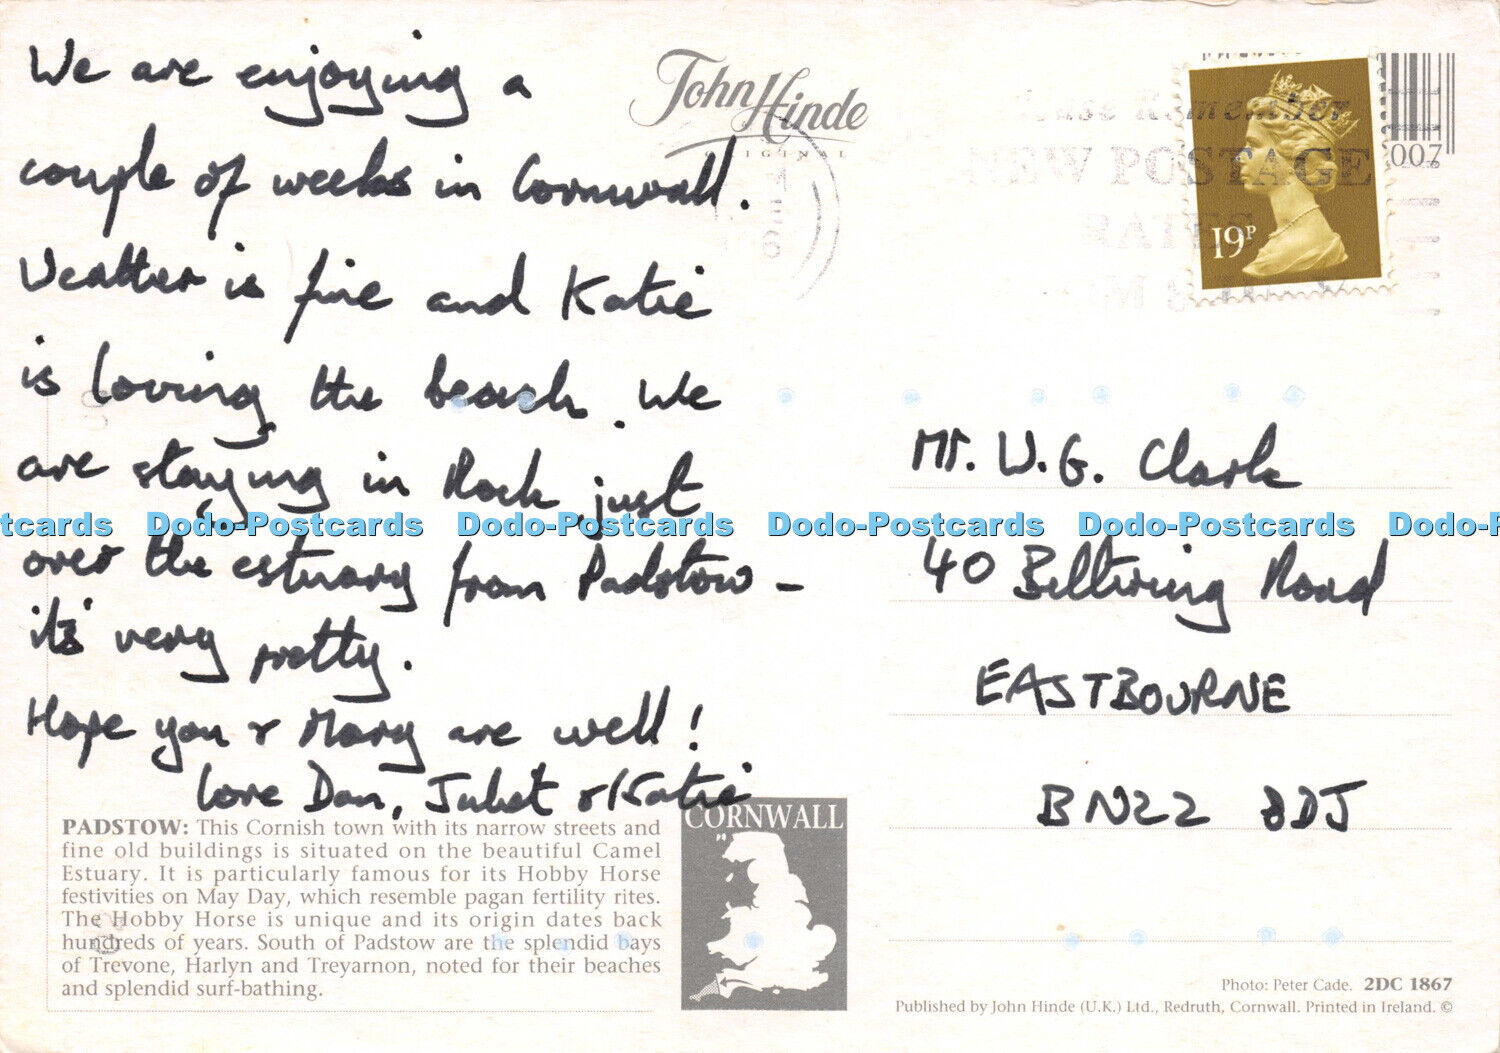 We are enjoying a
couple of weeks in Cornwall.
Weather is fine and Katie
is loving the beach. We
are staying in Rock, just
over the estuary from Padstow –
it's very pretty.
Hope you & Mary are well!
Love Dan, Juliet & Katie
PADSTOW: This Cornish town with its narrow streets and
fine old buildings is situated on the beautiful Camel
Estuary. It is particularly famous for its Hobby Horse
festivities on May Day, which resemble pagan fertility rites.
The Hobby Horse is unique and its origin dates back
hundreds of years. South of Padstow are the splendid bays
of Trevone, Harlyn and Treyarnon, noted for their beaches
and splendid surf-bathing.
CORNWALL
John Hinde
ORIGINAL
Remember
NEW POSTAGE
RATES
19P
007
Mr. W.G. Clark
40 Beltring Road
EASTBOURNE
BN22 8DJ
Photo: Peter Cade. 2DC 1867
Published by John Hinde (U.K.) Ltd., Redruth, Cornwall. Printed in Ireland. ©
tcards Dodo-Postcards Dodo-Postcards Dodo-Postcards Dodo-Postcards Dodo-P